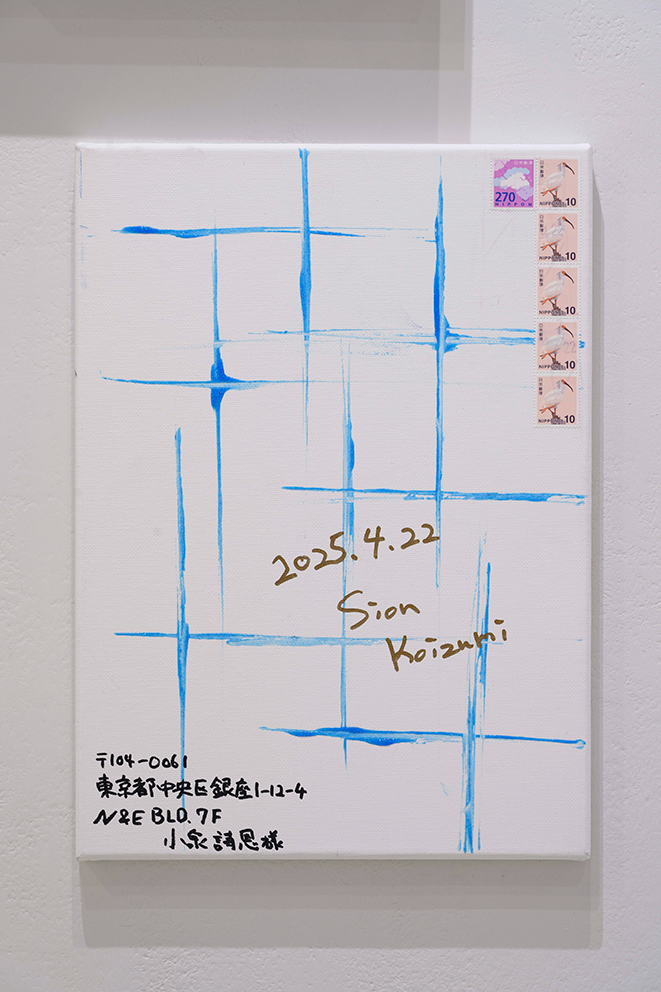 270
NIPPON
日本郵便
NIPPON 10
日本郵便
NIPPON 10
日本郵便
NIPPON 10
日本郵便
NIPPON 10
日本郵便
NIPPON 10
2025.4.22
Sion
Koizumi
〒104-0061
東京都中央区銀座1-12-4
N&E BLD.7F
小泉詩恩様